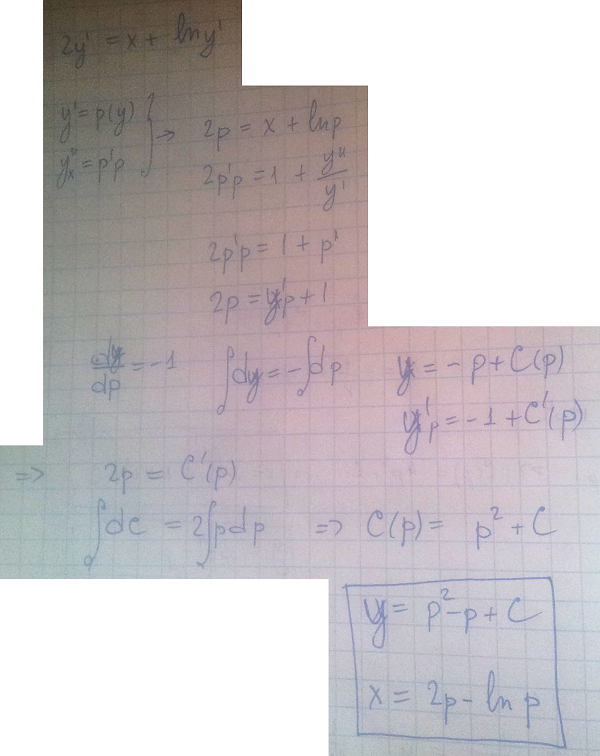 2y' = x + ln y'
y' = p(y)
y''ₓ = p'p
} → 2p = x + ln p
2p'p = 1 + y''/y'
2p'p = 1 + p'
2p = y'p + 1
dy/dp = -1 ∫dy = -∫dp y = -p + C(p)
y'p = -1 + C'(p)
=> 2p = C'(p)
∫dc = 2∫pdp => C(p) = p² + C
y = p² - p + C
x = 2p - ln p